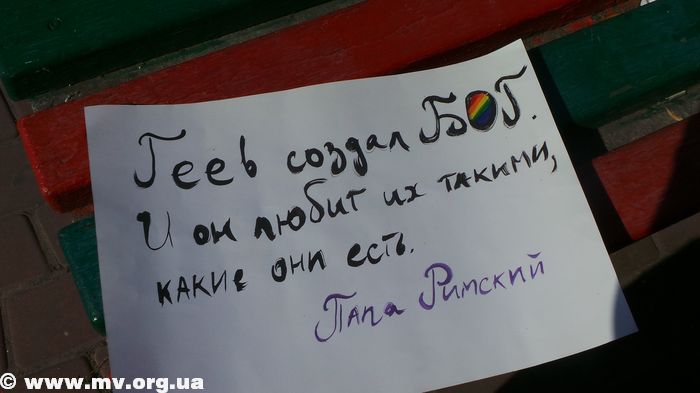 Геев создал БОГ.
И он любит их такими,
какие они есть.
Папа Римский
© www.mv.org.ua